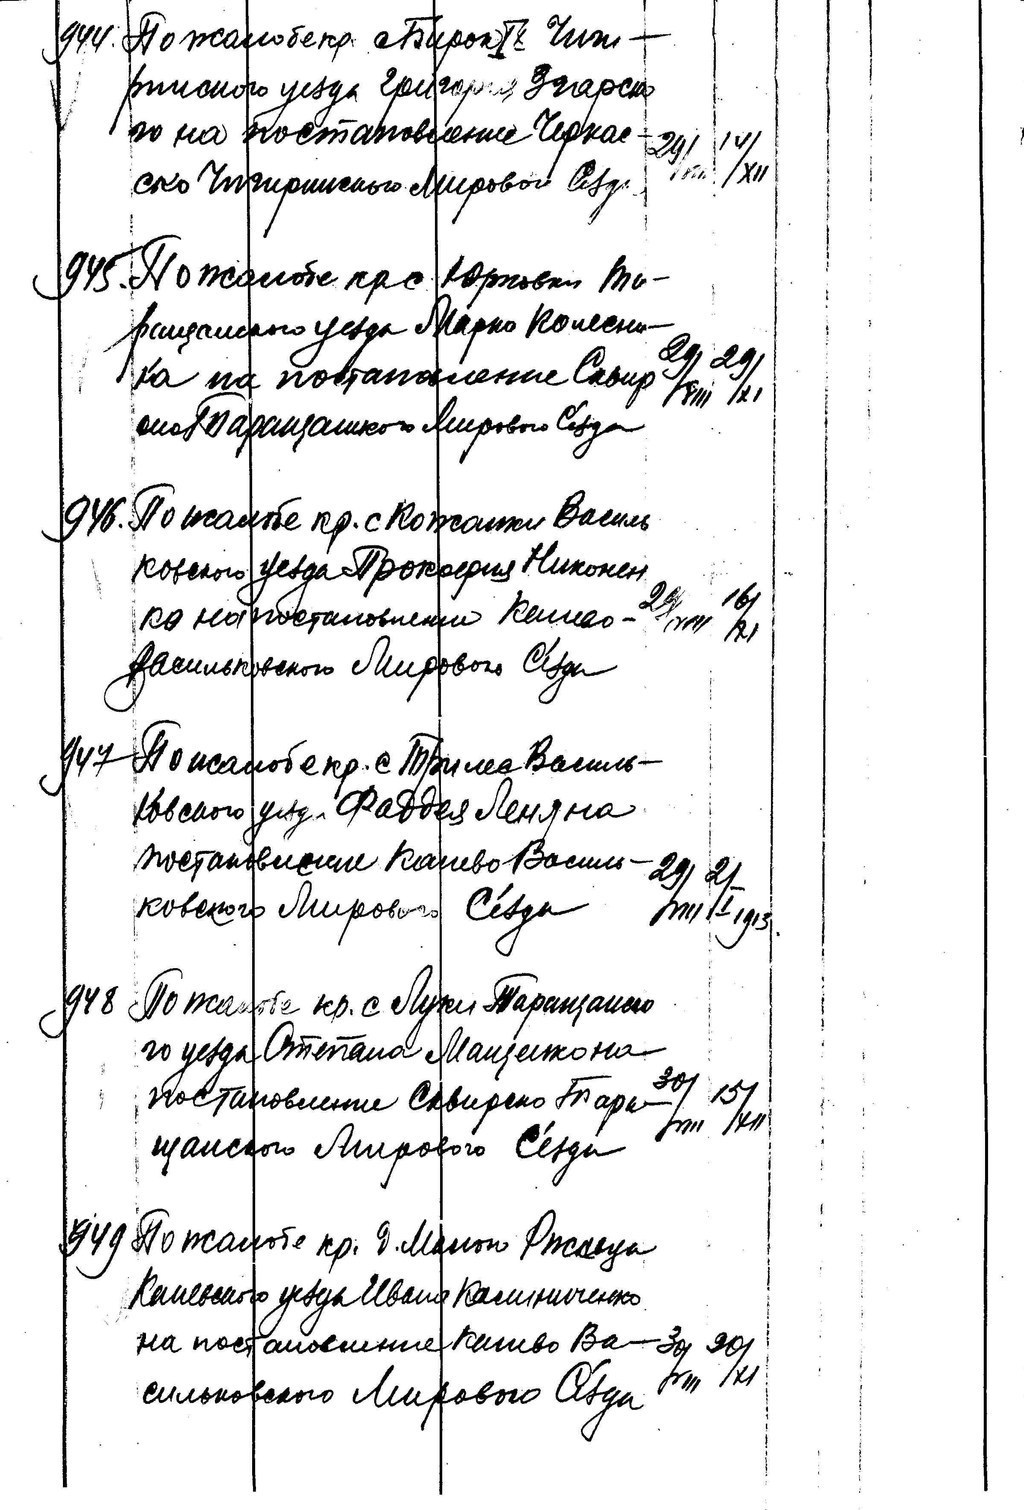 944. По жалобе кр. с Бирок Чиги-
ринского уезда Григория Згарско
го на постановление Черкас-
ско Чигиринского Мирового Сёзда 29/VIII 14/XII
945. По жалобе кр с Юрковки Та-
ращанского уезда Марко Колесни-
ка на постановление Сквир 29/VIII 29/XI
ско Таращанского Мирового Сёзда
946. По жалобе кр. с Кожанки Василь
ковского уезда Прокофия Никонен
ка на постановление Киево- 29/VIII 16/XI
Васильковского Мирового Сёзда
947 По жалобе кр. с Трилес Василь-
ковского уезд. Фаддея Лен на
постановление Киево Василь- 29/VIII 2/I 1913.
ковского Мирового Сёзда
948 По жалобе кр. с Луки Таращанско
го уезда Степана на
постановление Сквирско Тара- 30/VIII 15/XII
щанского Мирового Сёзда
949 По жалобе кр. д. Малой Ржавца
Каневского уезда Ивана Калиниченко
на постановление Киево Ва- 30/VIII 20/XI
сильковского Мирового Сёзда